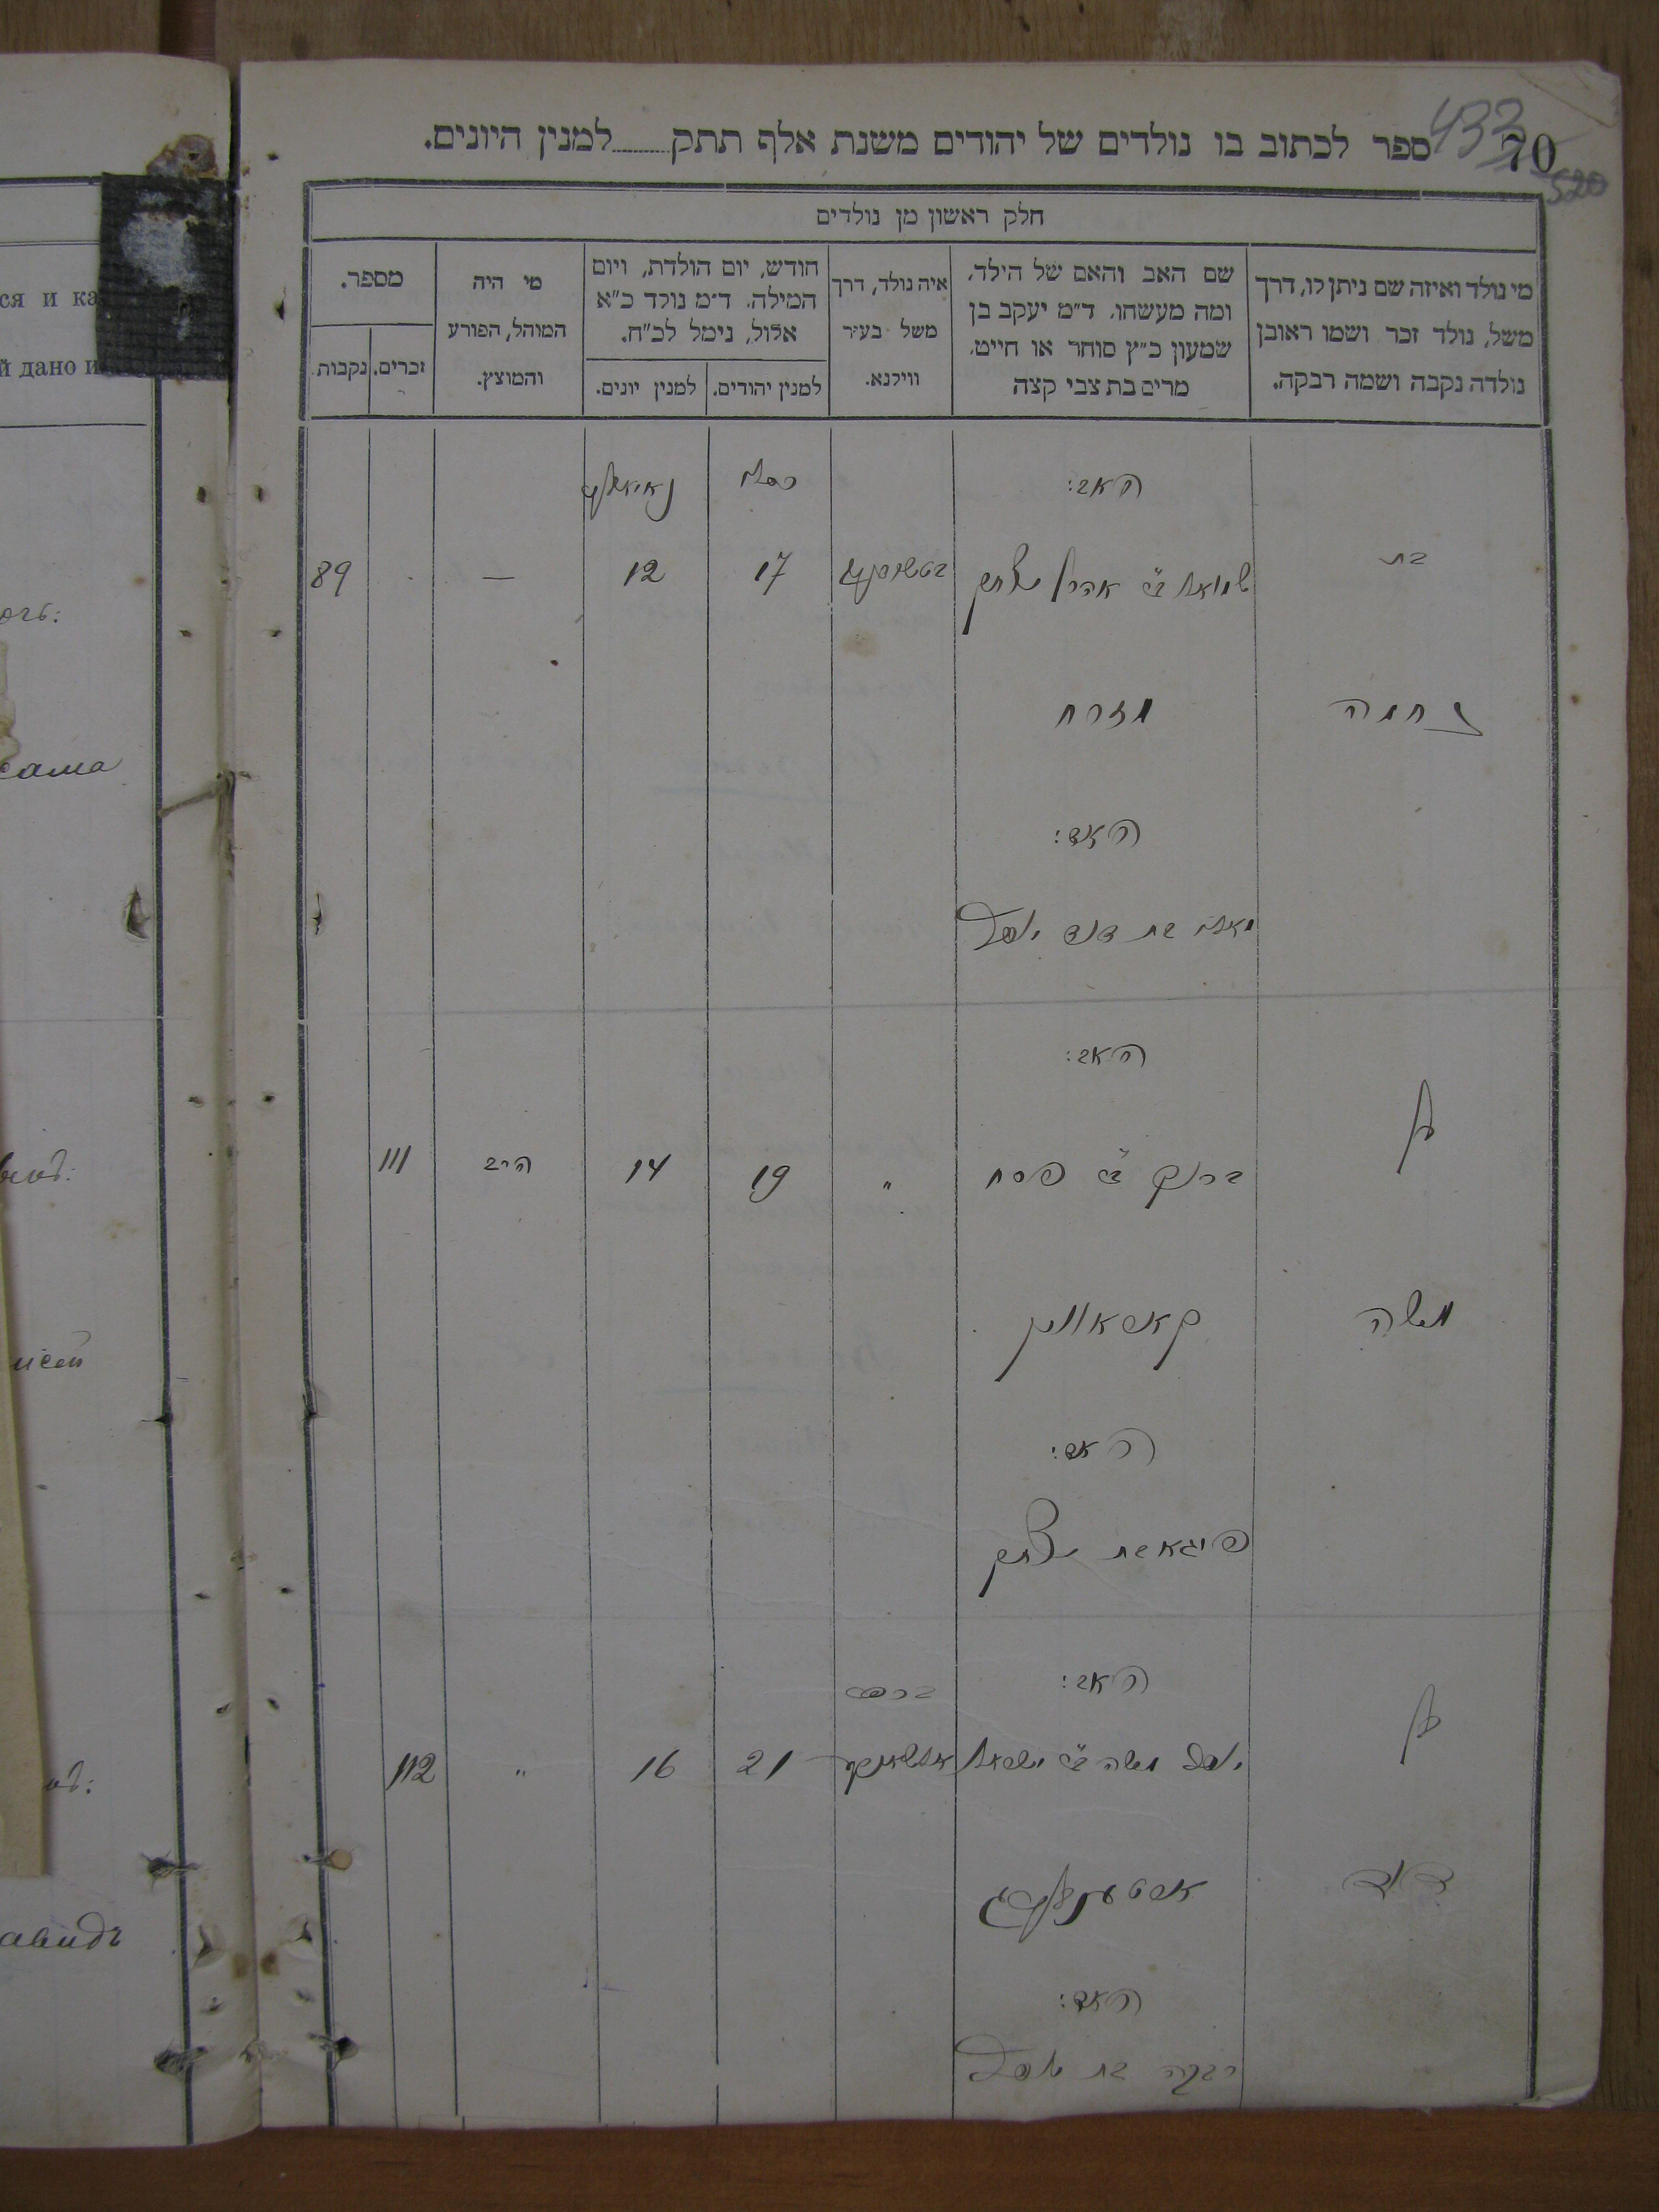 433
70
520
ספר לכתוב בו נולדים של יהודים משנת אלף תתק........למנין היונים.
חלק ראשון מן נולדים
מי נולד ואיזה שם ניתן לו, דרך
משל, נולד זכר ושמו ראובן
נולדה נקבה ושמה רבקה.
שם האב והאם של הילד,
ומה מעשהו. ד״מ יעקב בן
שמעון כ״ץ סוחר או חייט,
מרים בת צבי קצה
איה נולד, דרך
משל בעיר
ווילנא.
חודש, יום הולדת, ויום
המילה. ד״מ נולד כ״א
אלול, נימל לכ״ח.
למנין יהודים.
למנין יונים.
מי היה
המוהל, הפורע
והמוצץ.
מספר.
זכרים.
נקבות
האב:
כסלו
בת
שמואל ב״ר אהרן יצחק
17
12
—
89
נחמה
מזרח
האם:
בת דוד יוסף
האב:
בן
ב״ר פסח
"
19
14
הרב
111
משה
האם:
פיגא בת יצחק
האב:
בן
יוסף משה ב״ר ישראל
21
16
"
112
דוד
האם:
רבקה בת יוסף
ся и ка
й дано и
очь:
сама
исей
авидъ